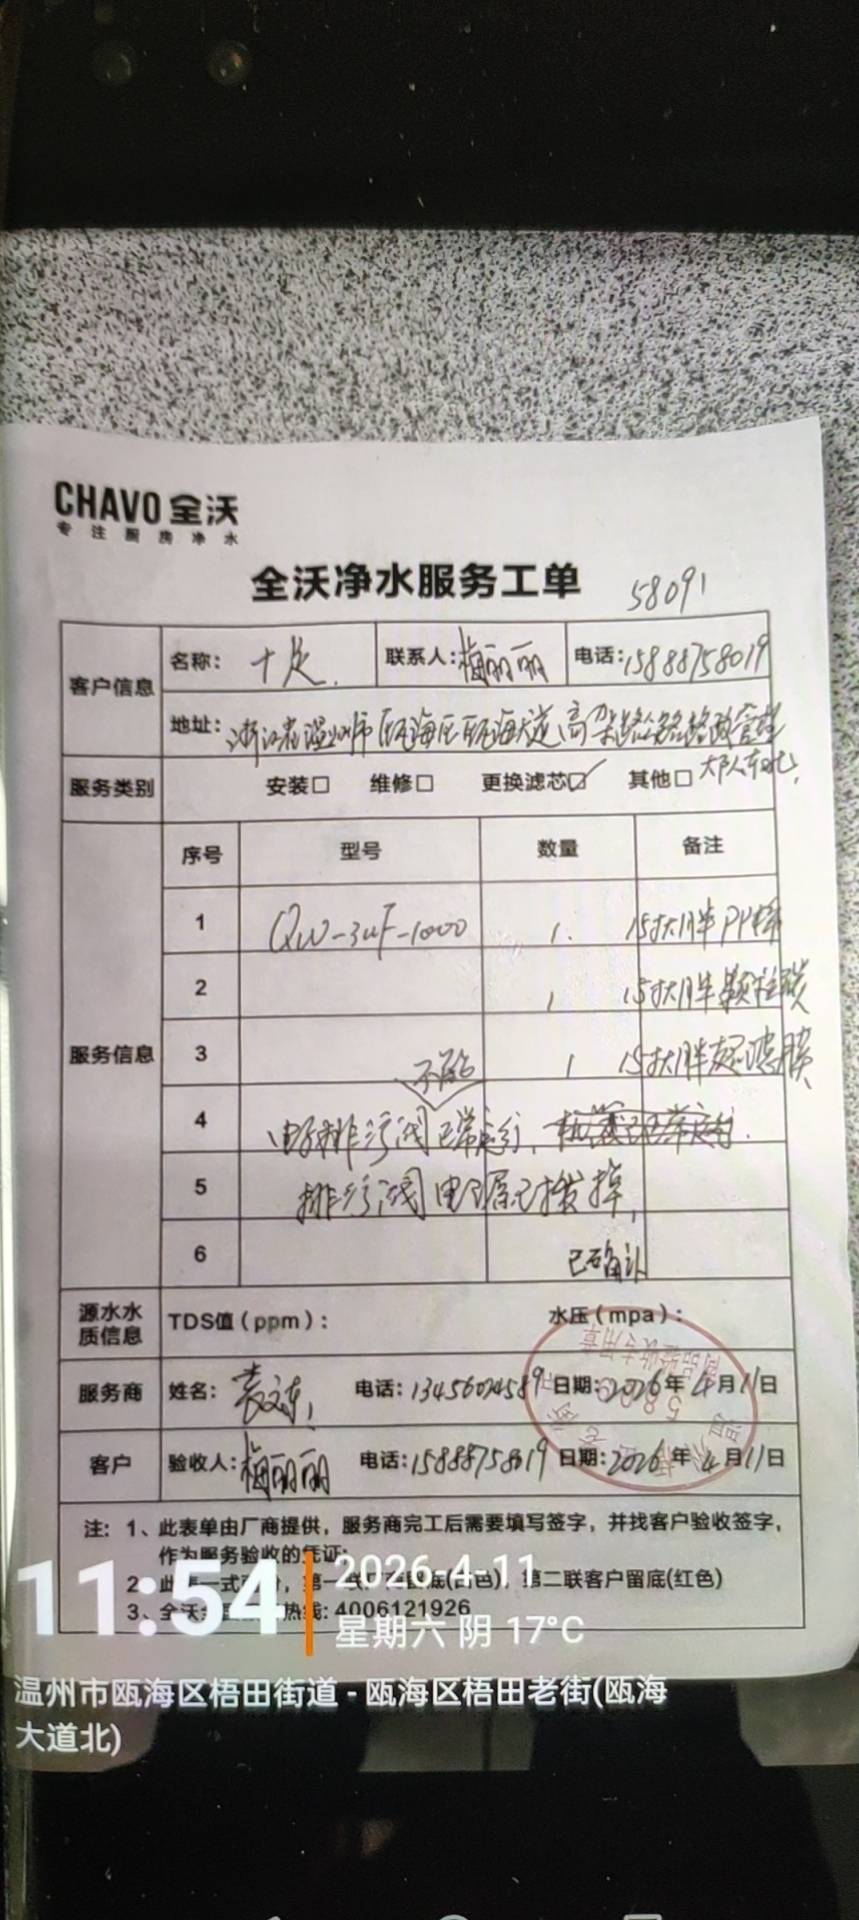 CHAVO 全沃
专注厨房净水
全沃净水服务工单
58091
客户信息
名称: 十足. 联系人: 梅丽丽 电话: 15888758019
地址: 浙江省温州市瓯海区瓯海大道、高架路公路路政管理
大队东北
服务类别 安装□ 维修□ 更换滤芯☑ 其他□
服务信息
序号 型号 数量 备注
1 QW-3UF-1000 1. 15寸大胖PP棉
2 1 15寸大胖颗粒碳
3 1 15寸大胖超滤膜
不能
4 电子排污阀正常运行,
5 排污阀电源已拔掉,
6 已确认
源水水质信息 TDS值(ppm): 水压(mpa):
服务商 姓名: 电话: 13456024589 日期: 2026年4月11日
客户 验收人: 梅丽丽 电话: 15888758019 日期: 2026年4月11日
商品验收专用章
注: 1、此表单由厂商提供，服务商完工后需要填写签字，并找客户验收签字，
作为服务验收的凭证;
2、此 一式 份，第一联 留底(白色)，第二联客户留底(红色)
3、全沃全国 热线: 4006121926
11:54
2026-4-11
星期六 阴 17°C
温州市瓯海区梧田街道 - 瓯海区梧田老街(瓯海
大道北)